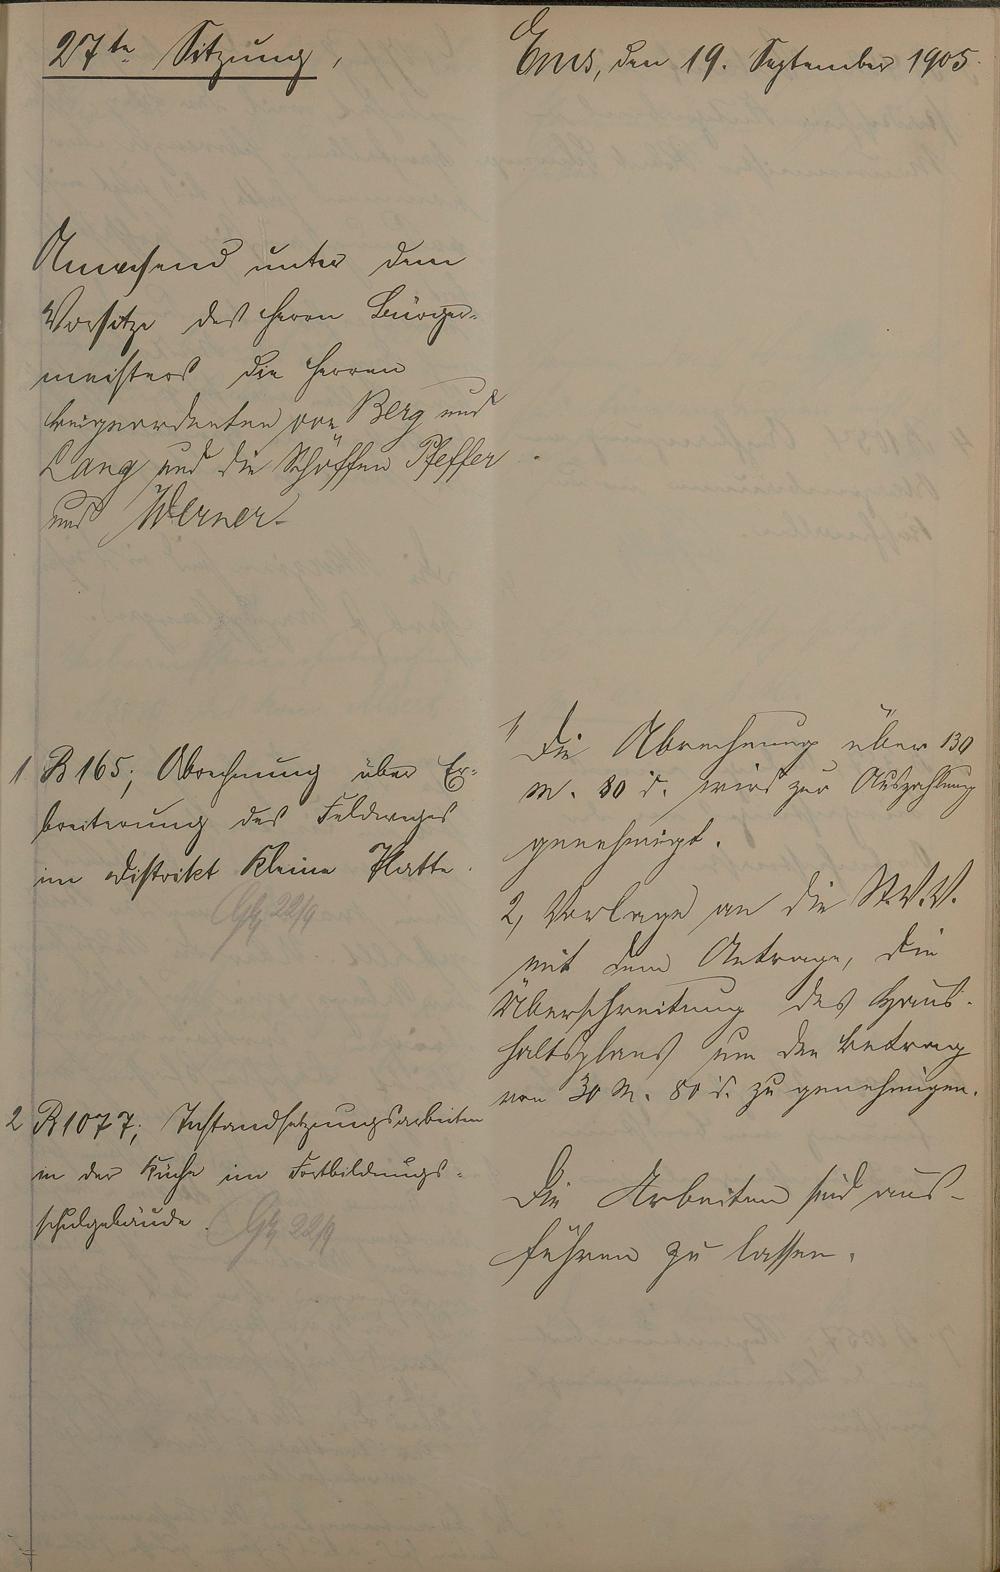 27te Sitzung,
Ems, den 19. September 1905.
Anwesend unter dem
Vorsitze des Herrn Bürger-
meisters die Herren
Beigeordneten von Berg und
Lang und die Schöffen Pfeffer
und Werner.
1 B 165; Abrechnung über Er-
breiterung des Feldweges
im Distrikt Kleine Platte.
22/9
1, Die Abrechnung über 130
M. 80 d. wird zur Auszahlung
genehmigt.
2, Vorlage an die St.V.V.
mit dem Antrage, die
Überschreitung des Haus-
haltsplans um den Betrag
von 30 M. 80 d. zu genehmigen.
2 B 1077; Instandsetzungsarbeiten
in der Küche im Fortbildungs-
schulgebäude.
22/9
Die Arbeiten sind aus-
führen zu lassen.